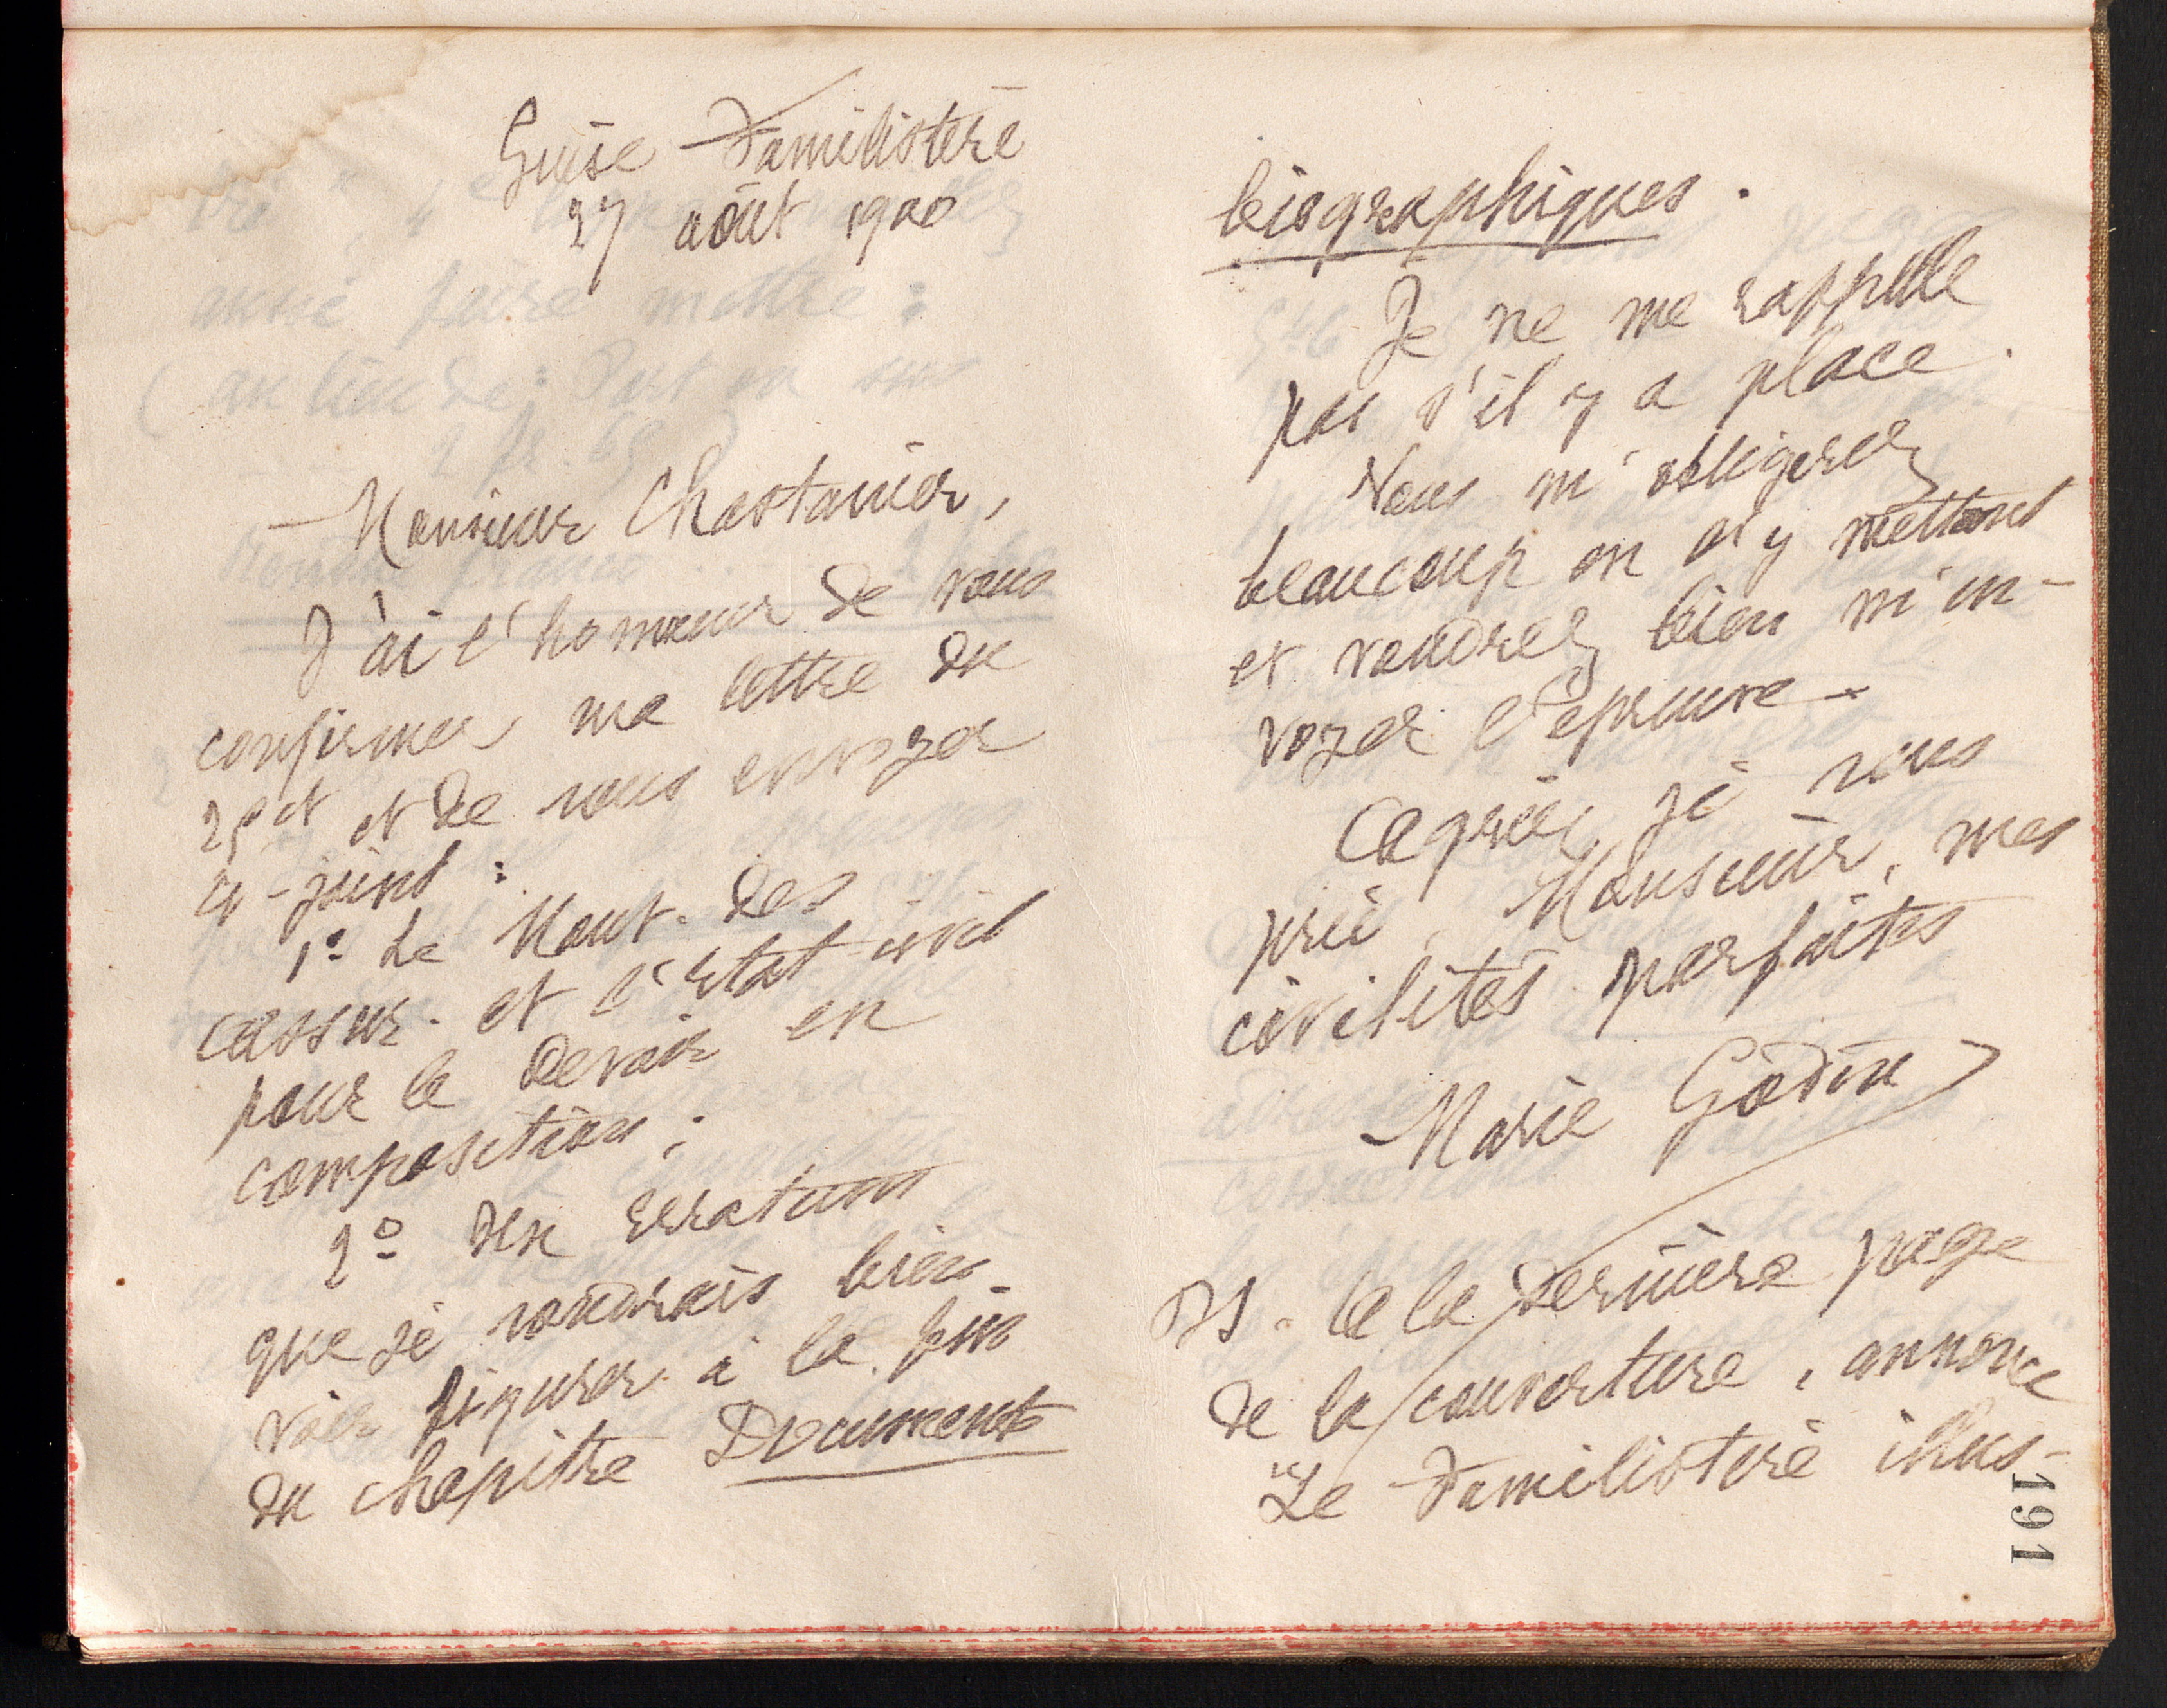 Guise Familistère
27 août 1900
Monsieur Chastanier,
J'ai l'honneur de vous
confirmer ma lettre du
25 ct et de vous envoyer
ci-joint :
1° Le Mouv. des
assur. et l'Etat civil
pour le Devoir en
composition ;
2° Un erratum
que je voudrais bien
voir figurer à la fin
du chapitre Documents
biographiques.
Je ne me rappelle
pas s'il y a place.
Vous m'obligerez
beaucoup en l'y mettant
et voudrez bien m'en-
voyer l'épreuve.
Agréez, je vous
prie, Monsieur, mes
civilités parfaites
Marie Godin
PS. A la dernière page
de la couverture, annonce
"Le Familistère illus-
191